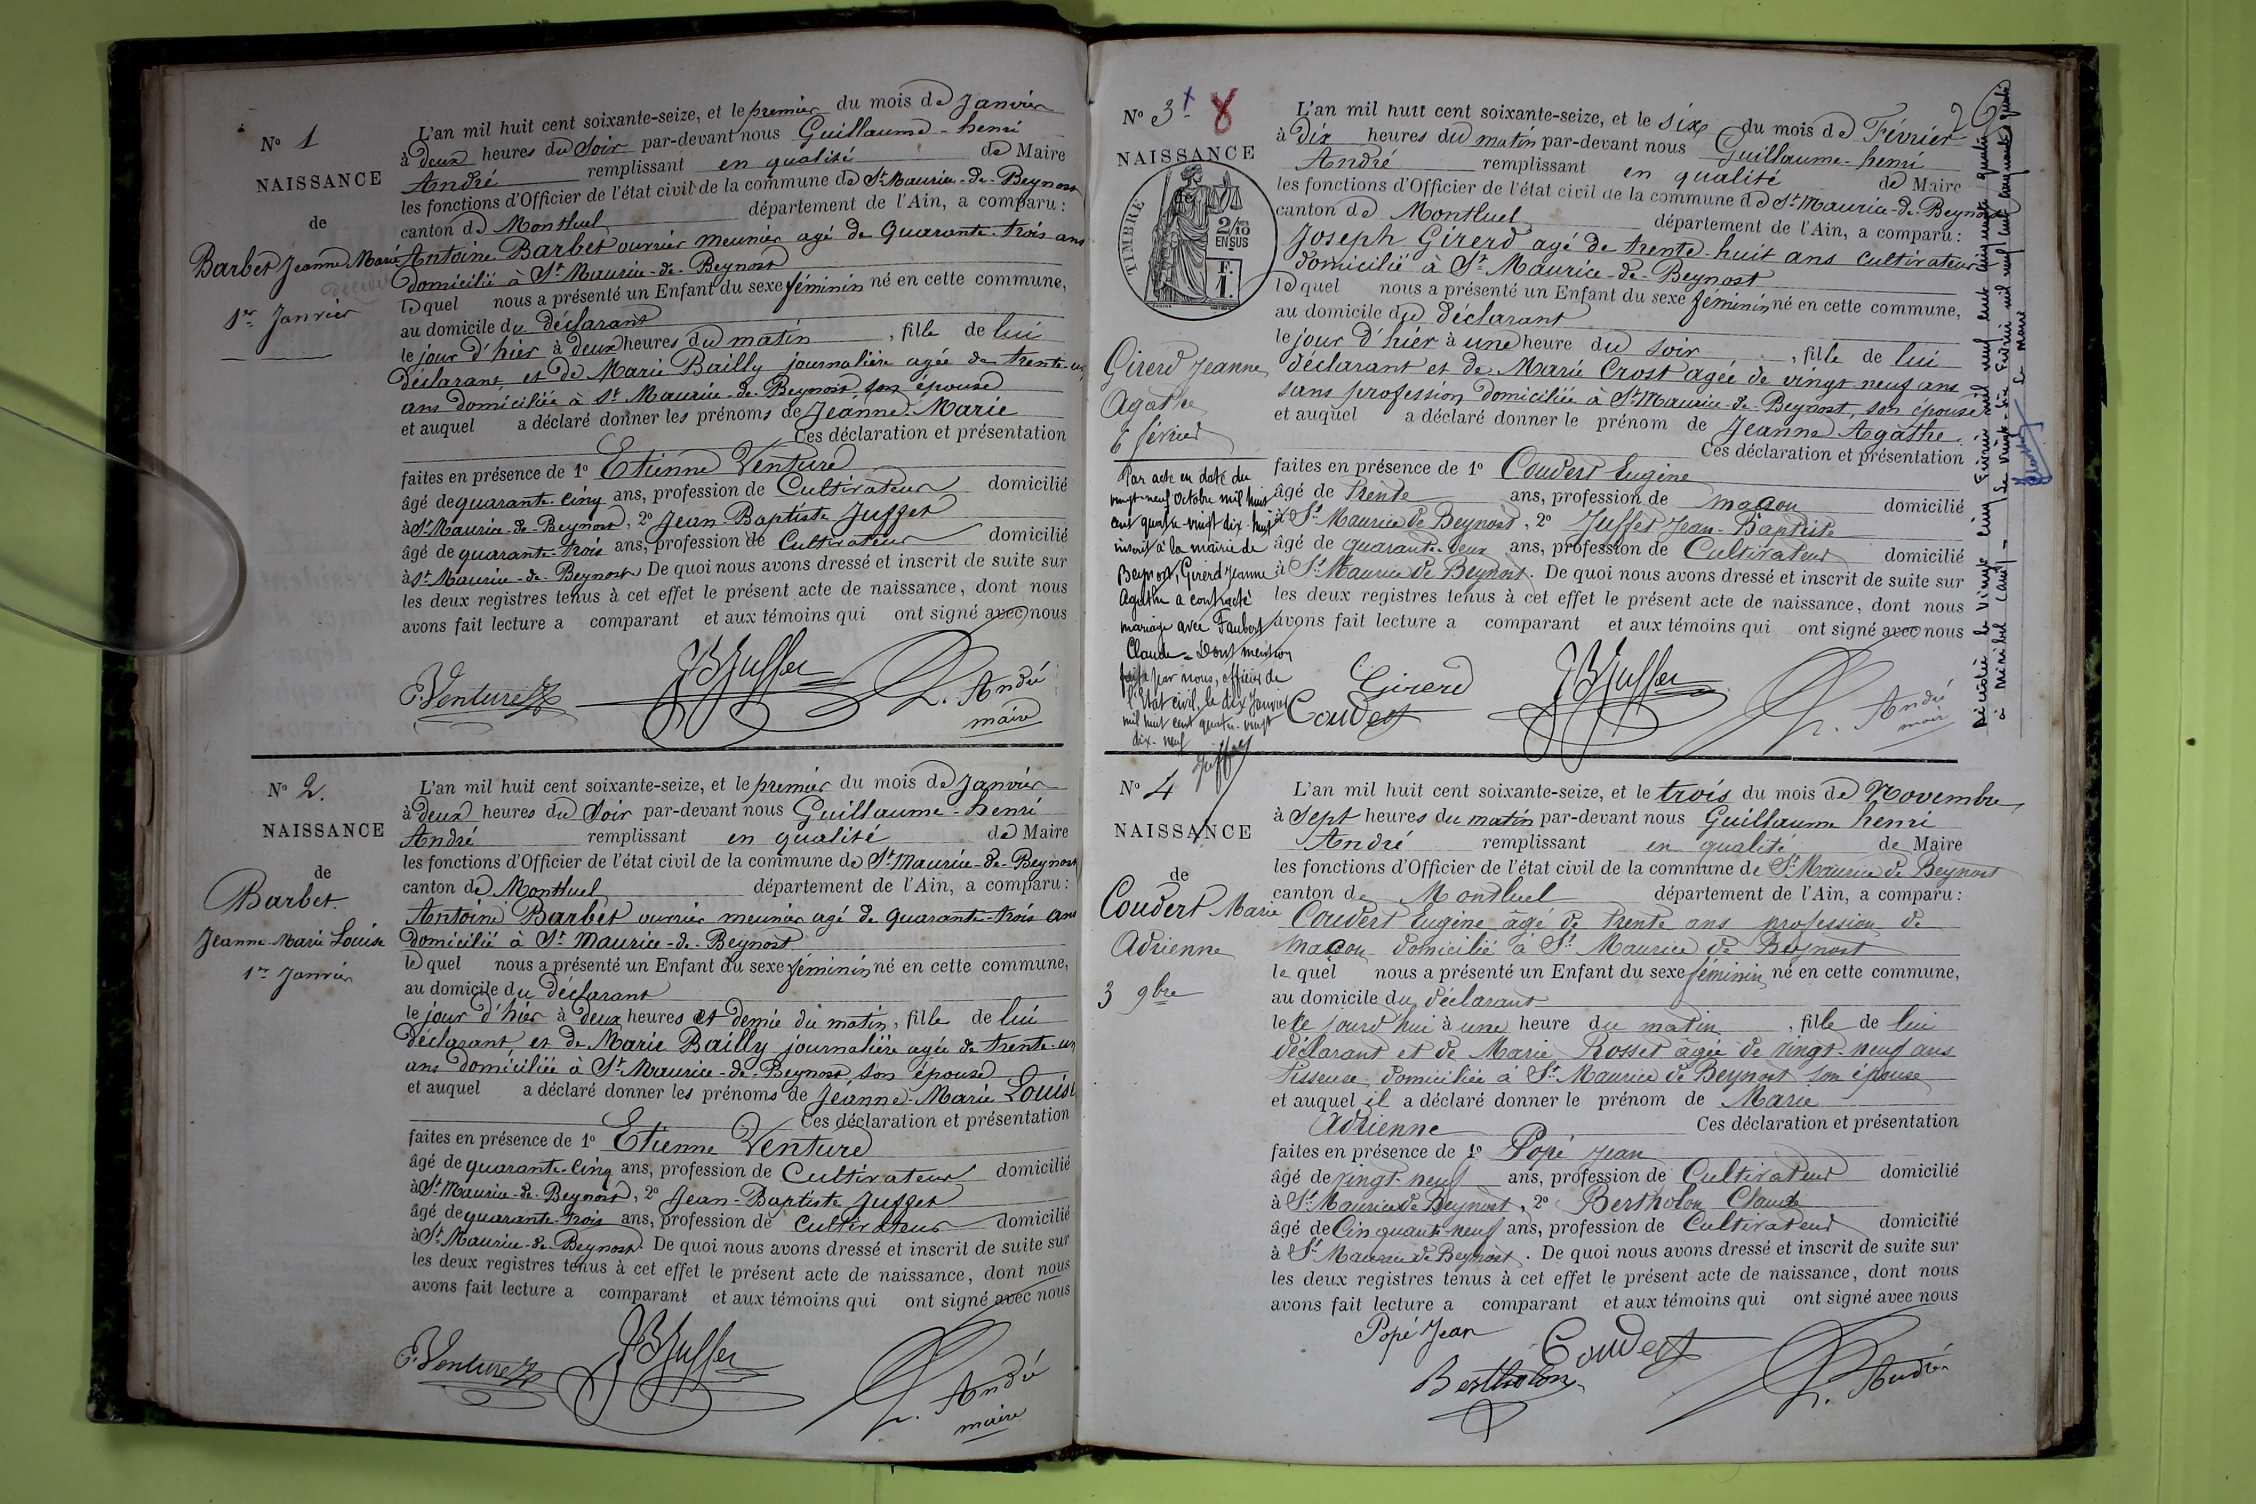 No 1
NAISSANCE
de
Barbet Jeanne Marie
1er Janvier
L'an mil huit cent soixante-seize, et le premier du mois de Janvier
à deux heures du Soir par-devant nous Guillaume-henri
André remplissant en qualité de Maire
les fonctions d'Officier de l'état civil de la commune de St Maurice-de-Beynost
canton de Montluel département de l'Ain, a comparu:
Antoine Barbet ouvrier meunier agé de Quarante-trois ans
domicilié à St Maurice-de-Beynost
lequel nous a présenté un Enfant du sexe féminin né en cette commune,
au domicile du déclarant
le jour d'hier à deux heures du matin, fille de lui
déclarant et de Marie Bailly journalière agée de trente-un
ans domiciliée à St Maurice-de-Beynost, son épouse
et auquel a déclaré donner les prénoms de Jeanne-Marie
Ces déclaration et présentation
faites en présence de 1o Etienne Venture
âgé de quarante-cinq ans, profession de Cultivateur domicilié
à St-Maurice-de-Beynost, 2o Jean-Baptiste Juffet
âgé de quarante-trois ans, profession de Cultivateur domicilié
à St-Maurice-de-Beynost. De quoi nous avons dressé et inscrit de suite sur
les deux registres tenus à cet effet le présent acte de naissance, dont nous
avons fait lecture a comparant et aux témoins qui ont signé avec nous
E. Venture JB Juffet h. André
maire
No 2.
NAISSANCE
de
Barbet
Jeanne-Marie Louise
1er Janvier
L'an mil huit cent soixante-seize, et le premier du mois de Janvier
à deux heures du Soir par-devant nous Guillaume-henri
André remplissant en qualité de Maire
les fonctions d'Officier de l'état civil de la commune de St-Maurice-de-Beynost
canton de Montluel département de l'Ain, a comparu:
Antoine Barbet ouvrier meunier agé de quarante-trois ans
domicilié à St Maurice-de-Beynost
lequel nous a présenté un Enfant du sexe féminin né en cette commune,
au domicile du déclarant
le jour d'hier à deux heures et demie du matin, fille de lui
déclarant et de Marie Bailly journalière agée de trente-un
ans domiciliée à St-Maurice-de-Beynost, son épouse
et auquel a déclaré donner les prénoms de Jeanne-Marie Louise
Ces déclaration et présentation
faites en présence de 1o Etienne Venture
âgé de quarante-cinq ans, profession de Cultivateur domicilié
à St-Maurice-de-Beynost, 2o Jean-Baptiste Juffet
âgé de quarante-trois ans, profession de Cultivateur domicilié
à St-Maurice-de-Beynost. De quoi nous avons dressé et inscrit de suite sur
les deux registres tenus à cet effet le présent acte de naissance, dont nous
avons fait lecture a comparant et aux témoins qui ont signé avec nous
E. Venture JB Juffet h. André
maire
No 3 8
NAISSANCE
de
TIMBRE
2/10
EN SUS
F.
1.
Girerd Jeanne
Agathe
6 février
Par acte en date du
vingt-neuf octobre mil huit
cent quatre-vingt dix-huit
inscrit à la mairie de
Beynost, Girerd Jeanne
Agathe a contracté
mariage avec Faubert
Claude = Dont mention
faite par nous, officier de
l'Etat civil, le dix Janvier
mil huit cent quatre-vingt
dix-neuf
Juffet
L'an mil huit cent soixante-seize, et le six du mois de Février
à dix heures du matin par-devant nous Guillaume-henri
André remplissant en qualité de Maire
les fonctions d'Officier de l'état civil de la commune de St-Maurice-de-Beynost
canton de Montluel département de l'Ain, a comparu:
Joseph Girerd agé de trente-huit ans cultivateur
domicilié à St-Maurice-de-Beynost
lequel nous a présenté un Enfant du sexe féminin né en cette commune,
au domicile du déclarant
le jour d'hier à une heure du soir, fille de lui
déclarant et de Marie Crost agée de vingt-neuf ans
sans profession domiciliée à St-Maurice-de-Beynost, son épouse
et auquel a déclaré donner le prénom de Jeanne Agathe
Ces déclaration et présentation
faites en présence de 1o Coudert Eugène
âgé de trente ans, profession de maçon domicilié
à St Maurice de Beynost, 2o Juffet Jean-Baptiste
âgé de quarante-deux ans, profession de Cultivateur domicilié
à St Maurice de Beynost. De quoi nous avons dressé et inscrit de suite sur
les deux registres tenus à cet effet le présent acte de naissance, dont nous
avons fait lecture a comparant et aux témoins qui ont signé avec nous
Girerd
Coudert JB Juffet h. André
maire
Décédée le vingt cinq Février mil neuf cent cinquante quatre
à Miribel (Ain) - le vingt-six Février mil neuf cent cinquante quatre
le maire
No 4
NAISSANCE
de
Coudert Marie
Adrienne
3 9bre
L'an mil huit cent soixante-seize, et le trois du mois de Novembre
à Sept heures du matin par-devant nous Guillaume henri
André remplissant en qualité de Maire
les fonctions d'Officier de l'état civil de la commune de St Maurice de Beynost
canton de Montluel département de l'Ain, a comparu:
Coudert Eugène âgé de trente ans profession de
maçon domicilié à St Maurice de Beynost
lequel nous a présenté un Enfant du sexe féminin né en cette commune,
au domicile du déclarant
le ce jourd'hui à une heure du matin, fille de lui
déclarant et de Marie Rosset âgée de vingt-neuf ans
tisseuse domiciliée à St Maurice de Beynost son épouse
et auquel il a déclaré donner le prénom de Marie
Adrienne Ces déclaration et présentation
faites en présence de 1o Popé Jean
âgé de vingt-neuf ans, profession de Cultivateur domicilié
à St Maurice de Beynost, 2o Bertholon Claude
âgé de Cinquante-neuf ans, profession de Cultivateur domicilié
à St Maurice de Beynost. De quoi nous avons dressé et inscrit de suite sur
les deux registres tenus à cet effet le présent acte de naissance, dont nous
avons fait lecture a comparant et aux témoins qui ont signé avec nous
Popé Jean Coudert
Bertholon h. André